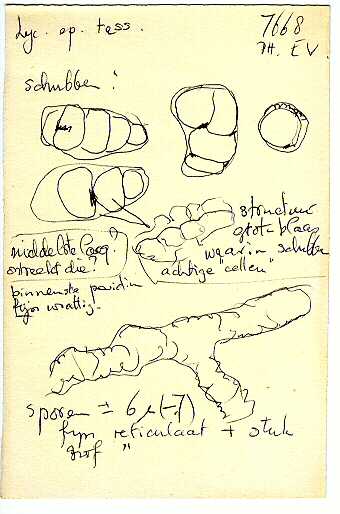 Lyc. sp. tess.
7668
TH. EV
schubben:
structuur
grote blaas
"waarin schubben
achtige cellen"
middelste laag?
ontbreekt die?
binnenste peridium
fijn wrattig!
sporen ± 6 µ (-7)
fijn reticulaat + stuk
grof "